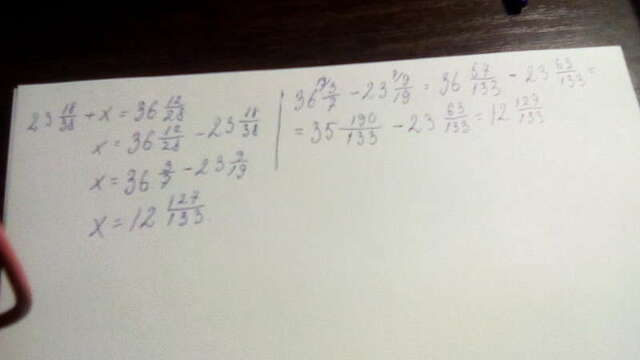 23 18/38 + x = 36 12/28
x = 36 12/28 - 23 18/38
x = 36 3/7 - 23 9/19
x = 12 127/133
36 3/7 - 23 9/19 = 36 57/133 - 23 63/133 =
= 35 190/133 - 23 63/133 = 12 127/133